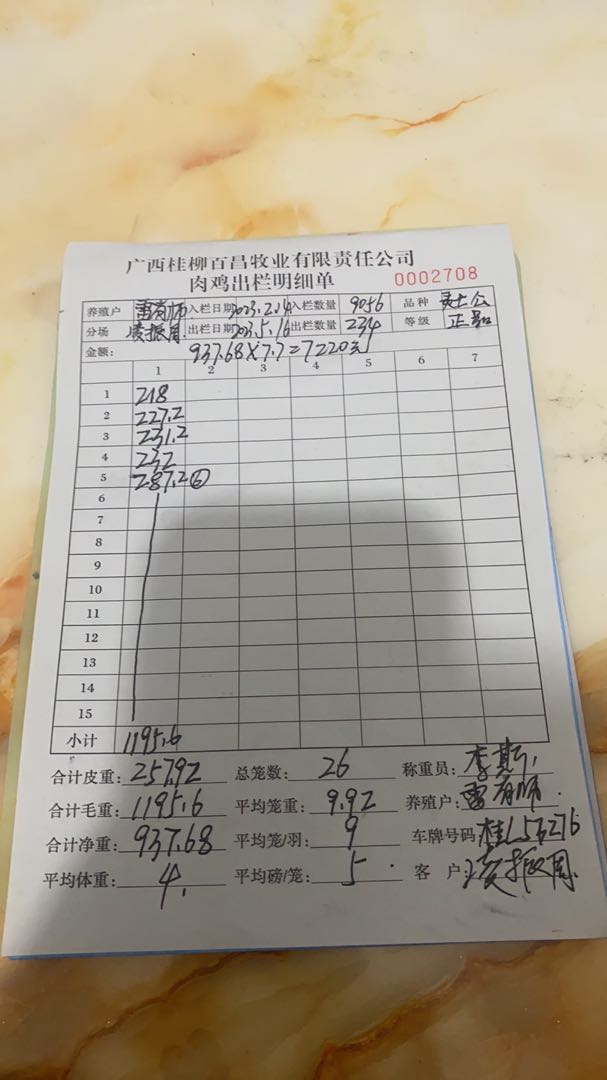 广西桂柳百昌牧业有限责任公司
肉鸡出栏明细单 0002708
养殖户 雷有师 入栏日期 2023.2.14 入栏数量 9056 品种
分场 凌振周 出栏日期 2023.5.16 出栏数量 234 等级 正品
金额: 937.68×7.7=7220元
1 2 3 4 5 6 7
1 218
2 227.2
3 231.2
4 232
5 287.2 ⑥
6
7
8
9
10
11
12
13
14
15
小计 1195.6
合计皮重: 257.92 总笼数: 26 称重员: 李斯
合计毛重: 1195.6 平均笼重: 9.92 养殖户: 雷有师
合计净重: 937.68 平均笼/羽: 9 车牌号码 桂L53276
平均体重: 4. 平均磅/笼: 5 客户: 凌振周